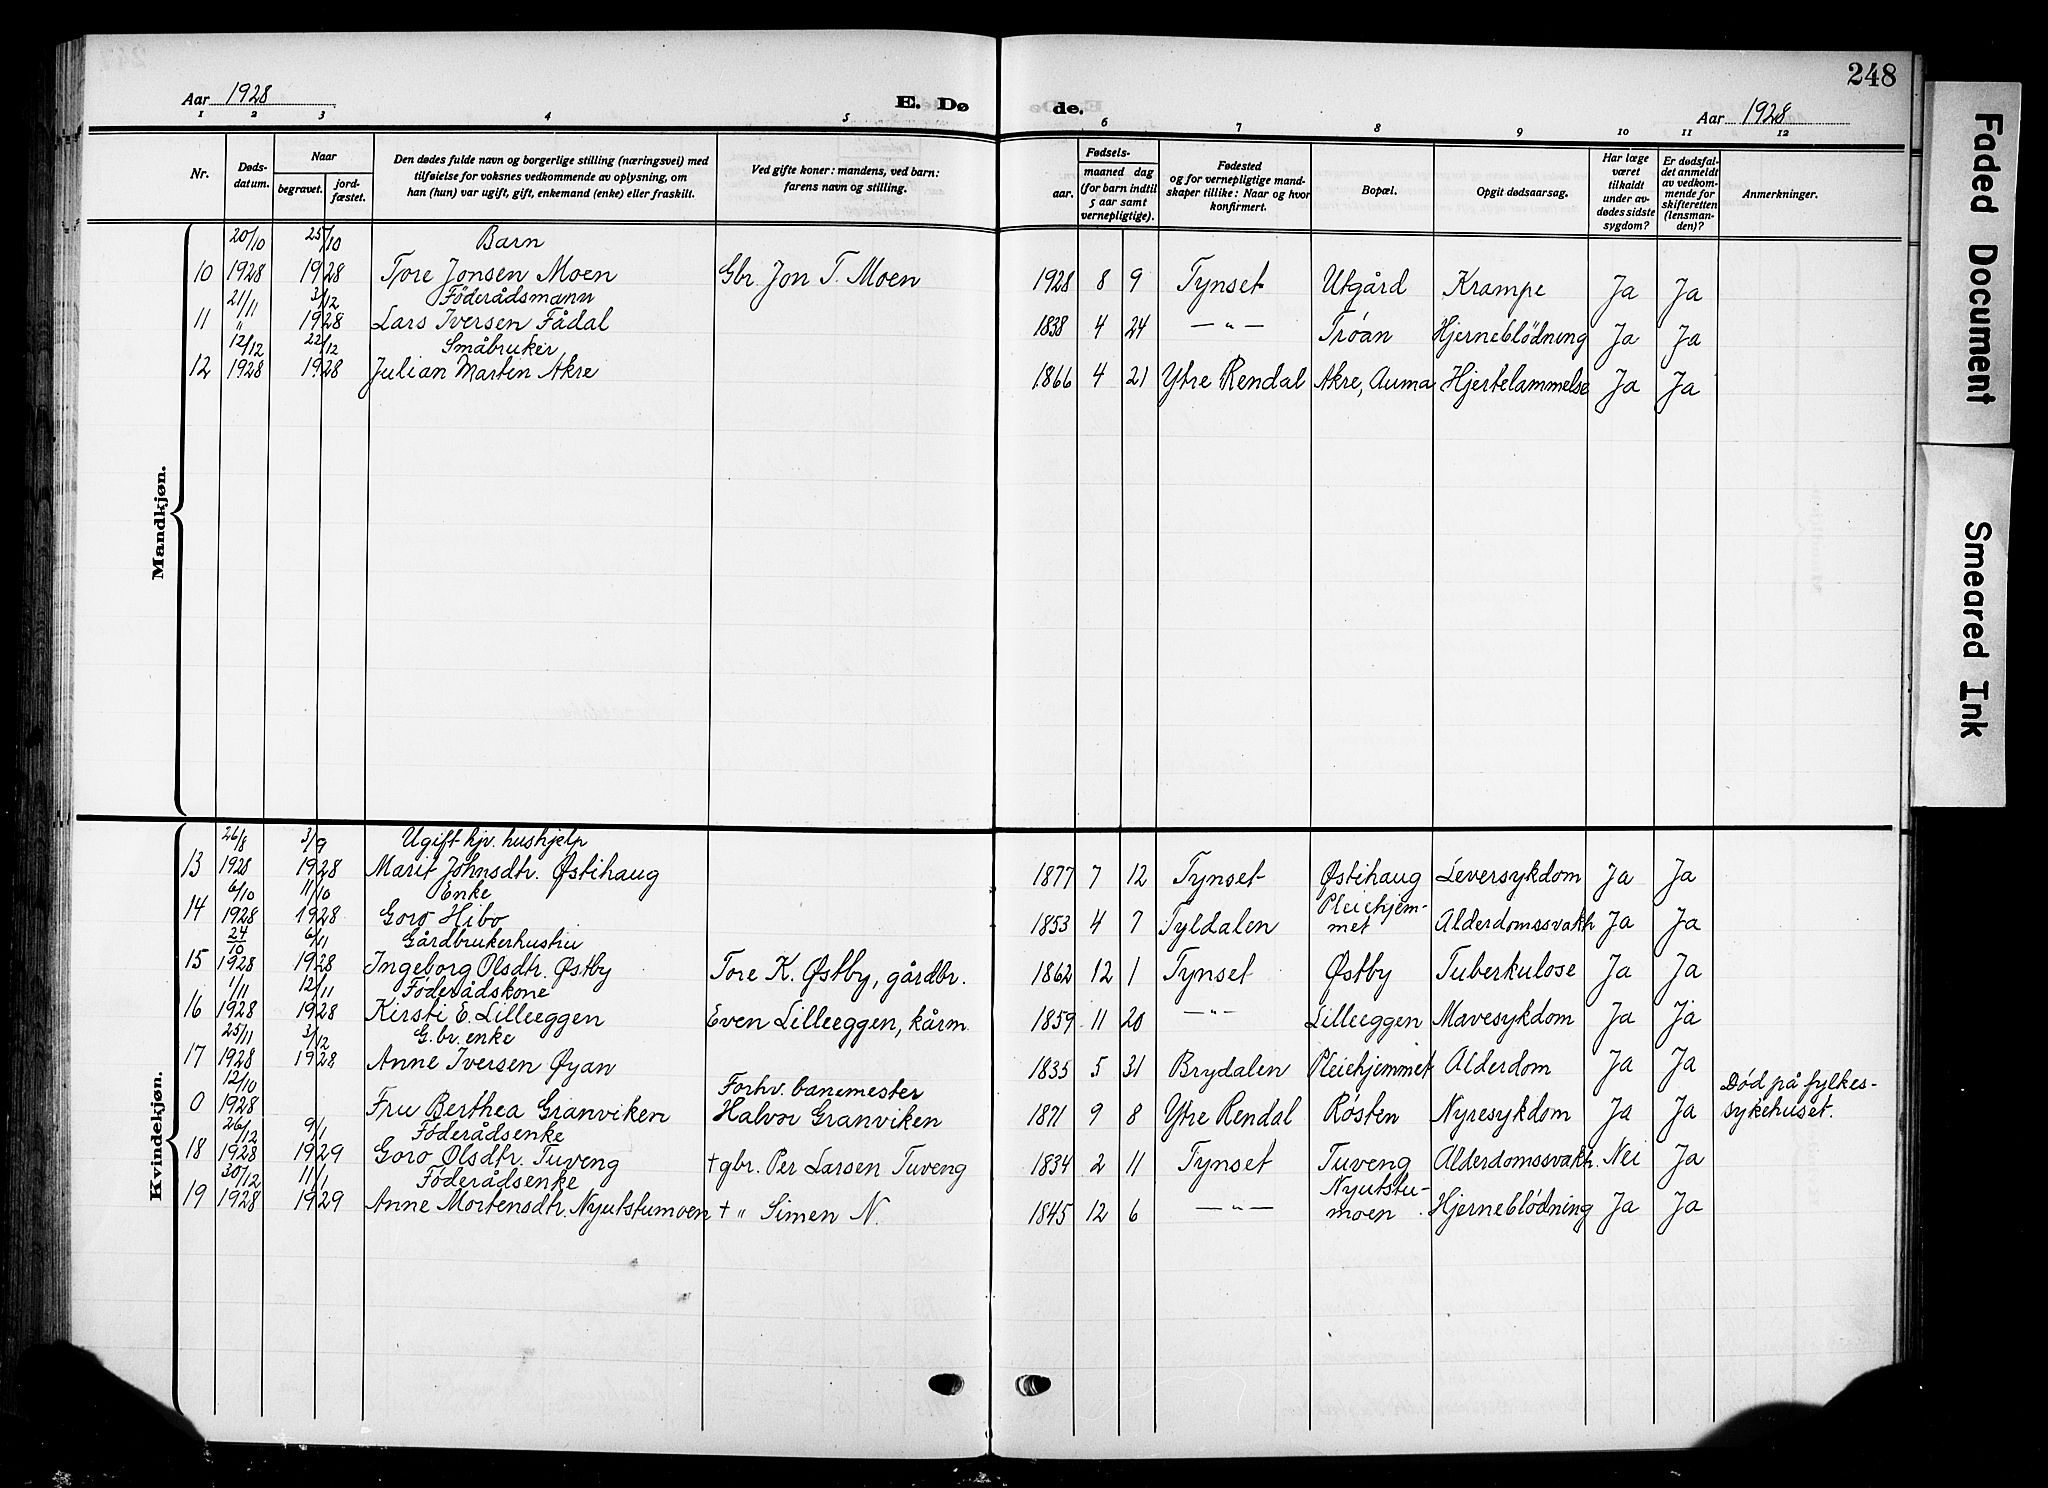 248
Aar 1928
E. Dø
de.
Aar 1928
1 2 3 4 5 6 7 8 9 10 11 12
Nr.
Døds-
datum.
Naar
begravet.
jord-
fæstet.
Den dødes fulde navn og borgerlige stilling (næringsvei) med
tilføielse for voksnes vedkommende av oplysning, om
han (hun) var ugift, gift, enkemand (enke) eller fraskilt.
Ved gifte koner: mandens, ved barn:
farens navn og stilling.
Fødsels-
aar.
maaned dag
(for barn indtil
5 aar samt
vernepligtige).
Fødested
og for vernepligtige mand-
skaper tillike: Naar og hvor
konfirmert.
Bopæl.
Opgit dødsaarsag.
Har læge
været
tilkaldt
under av-
dødes sidste
sygdom?
Er dødsfal-
det anmeldt
av vedkom-
mende for
skifteretten
(lensman-
den)?
Anmerkninger.
Mandkjøn.
20/10 25/10 Barn
10 1928 1928 Tore Jonsen Moen Gbr. Jon T. Moen 1928 8 9 Tynset Utgård Krampe Ja Ja
21/11 3/12 Föderådsmann
11 " 1928 Lars Iversen Fådal 1838 4 24 —"— Tróan Hjerneblödning Ja Ja
12/12 22/12 Småbruker
12 1928 1928 Julian Martin Akre 1866 4 21 Ytre Rendal Akre, Auma Hjertelammelse Ja Ja
Kvindekjøn.
26/8 3/9 Ugift hjv. hushjelp
13 1928 1928 Marit Johnsdtr. Østihaug 1877 7 12 Tynset Østihaug Leversykdom Ja Ja
6/10 11/10 Enke Pleiehjem-
14 1928 1928 Goro Hibo 1853 4 7 Tyldalen met Alderdomssvakh Ja Ja
24/10 6/11 Gårdbrukerhustru
15 1928 1928 Ingeborg Olsdtr. Østby Tore K. Østby, gårdbr. 1862 12 1 Tynset Østby Tuberkulose Ja Ja
1/11 12/11 Föderådskone
16 1928 1928 Kirsti E. Lilleeggen Even Lilleeggen, kårm. 1859 11 20 —"— Lilleeggen Mavesykdom Ja Ja
25/11 3/12 G.br. enke
17 1928 1928 Anne Iversen Øyan 1835 5 31 Brydalen Pleiehjemmet Alderdom Ja Ja
12/10 Forhv. banemester Död på fylkes-
0 1928 Fru Berthea Granviken Halvor Granviken 1871 9 8 Ytre Rendal Røsten Nyresykdom Ja Ja sykehuset.
26/12 9/1 Föderådsenke
18 1928 1929 Goro Olsdtr. Tuveng + gbr. Per Larsen Tuveng 1834 2 11 Tynset Tuveng Alderdomssvakh. Nei Ja
30/12 11/1 Föderådsenke Nyutstu-
19 1928 1929 Anne Mortensdtr. Nyutstumoen + " Simen N. 1845 12 6 —"— moen Hjerneblödning Ja Ja
Faded Document
Smeared Ink